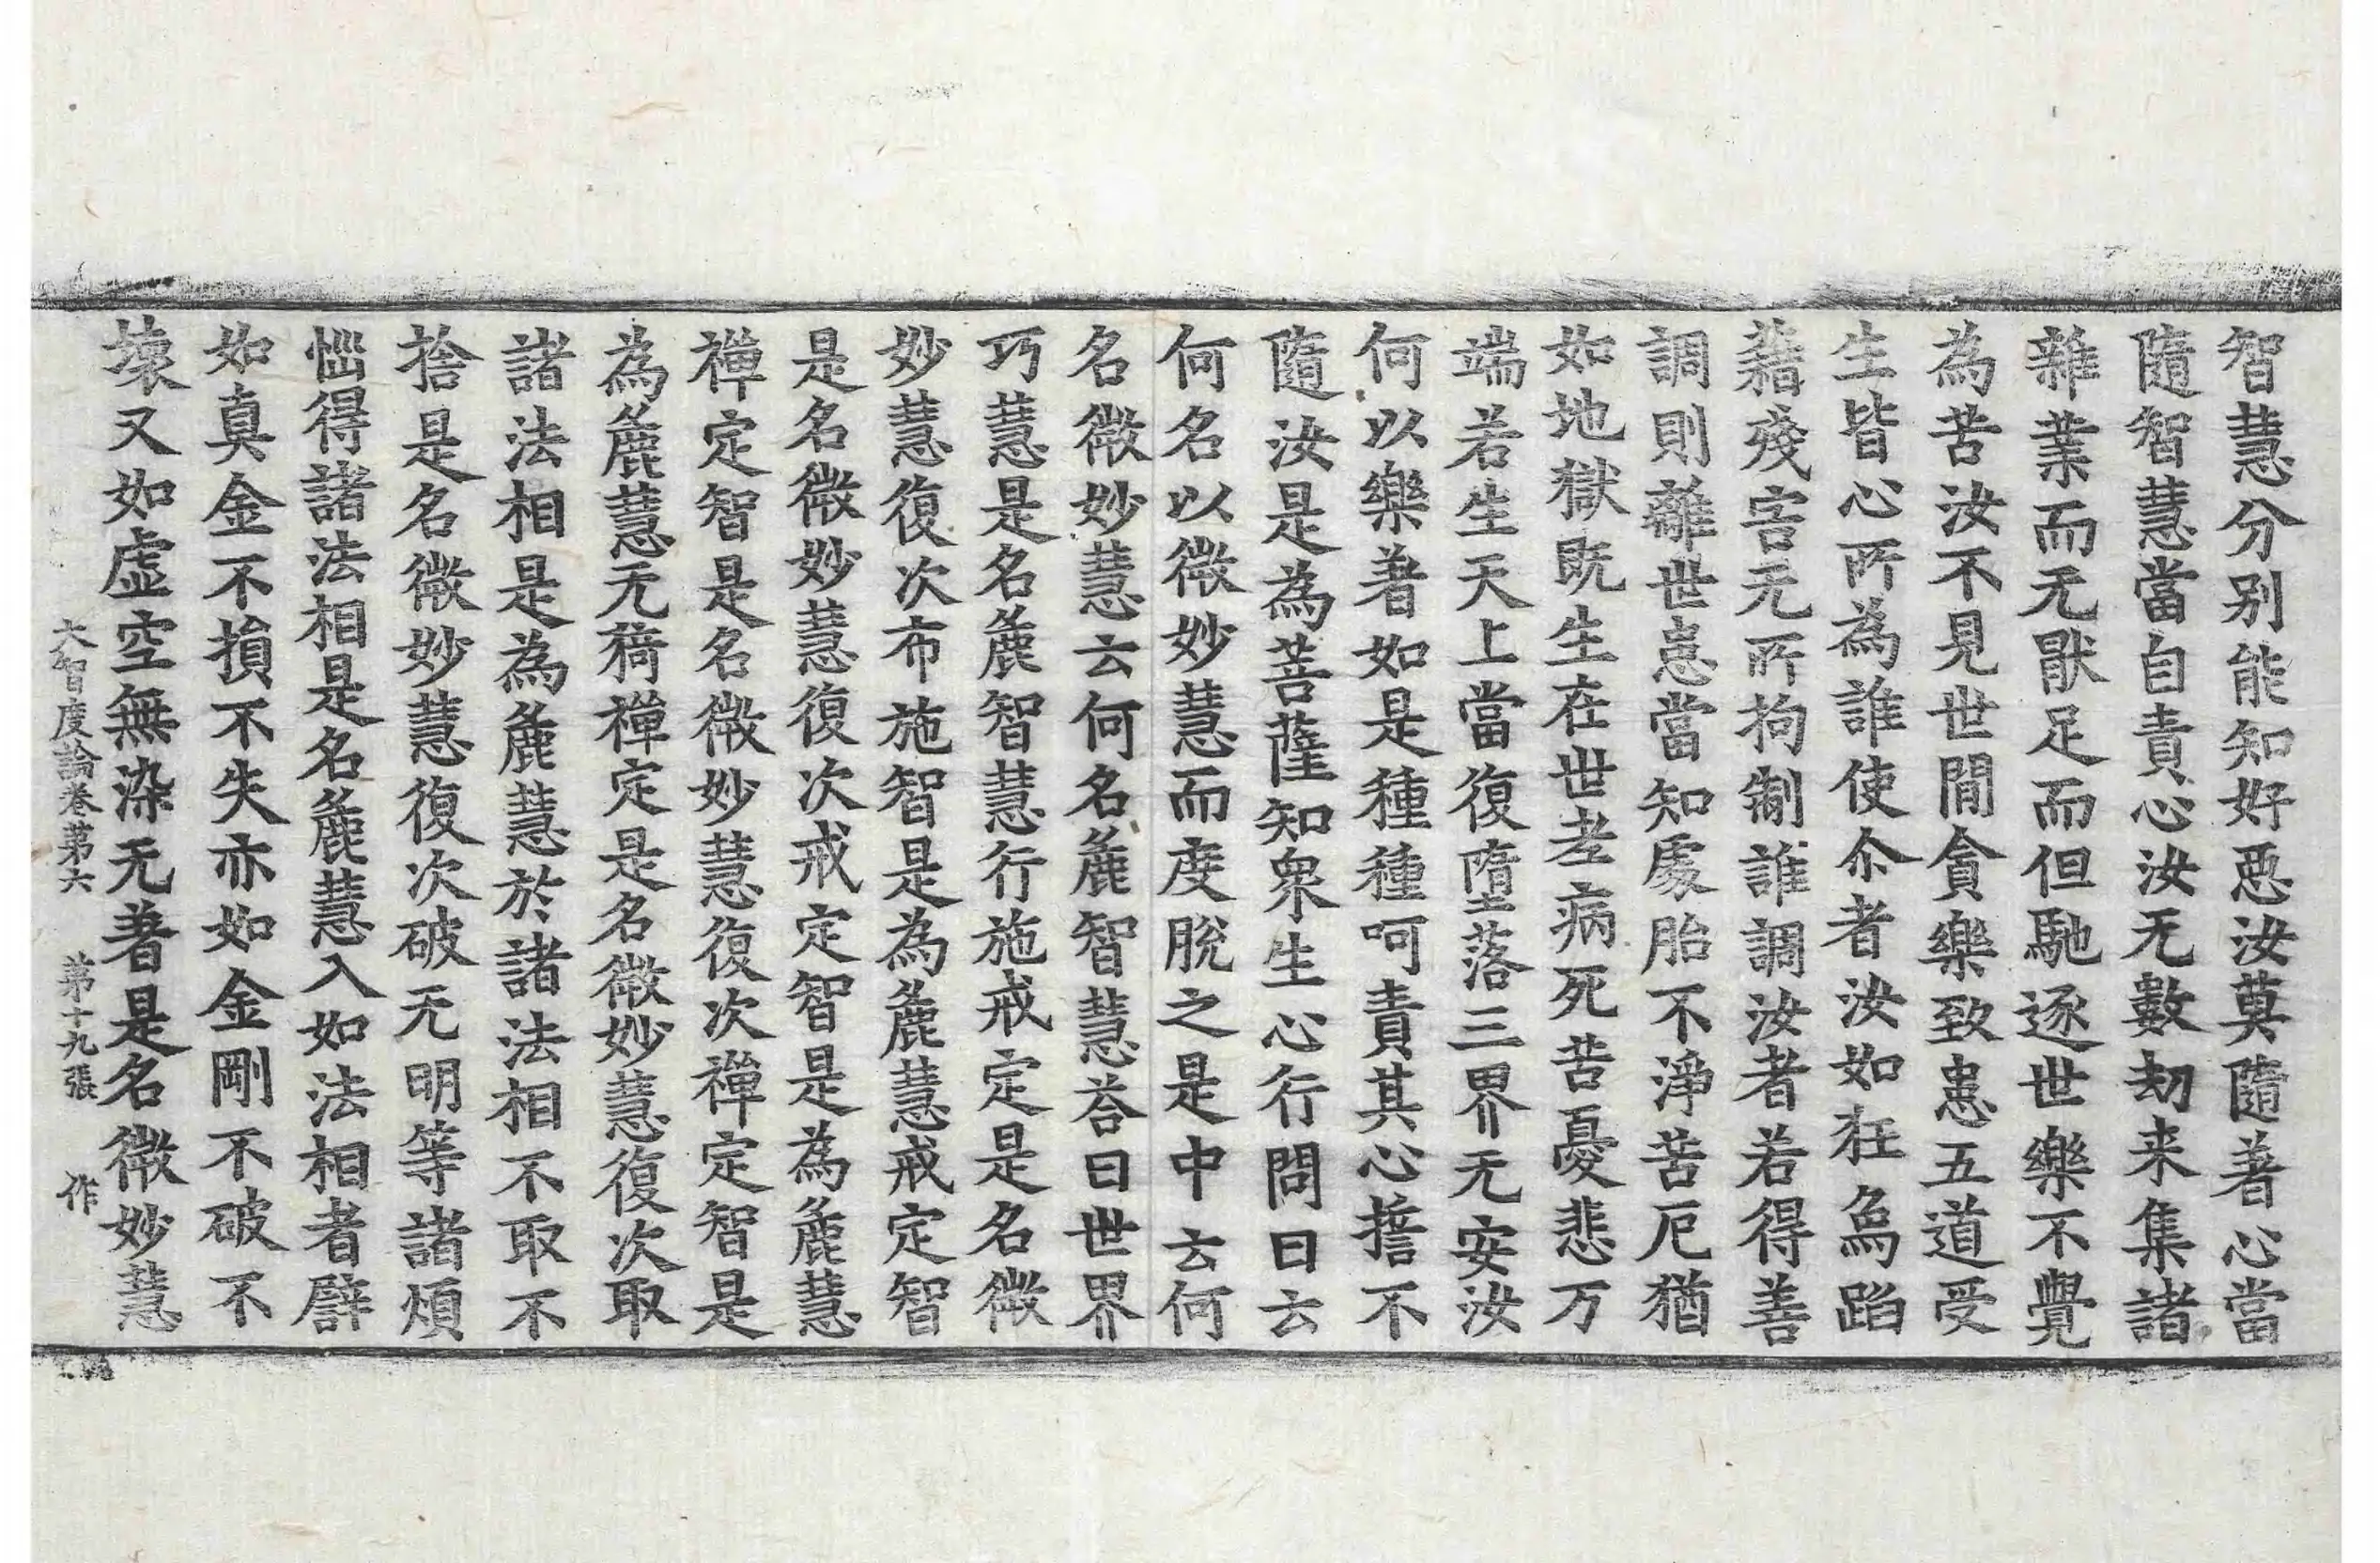 智慧分別能知好惡汝莫隨著心當
隨智慧當自責心汝无數劫来集諸
雜業而无猒足而但馳逐世樂不覺
為苦汝不見世間貪樂致患五道受
生皆心所為誰使尒者汝如狂鳥蹈
藉殘害无所拘制誰調汝者若得善
調則離世患當知處胎不淨苦厄猶
如地獄既生在世老病死苦憂悲万
端若生天上當復墮落三界无安汝
何以樂著如是種種呵責其心誓不
隨汝是為菩薩知衆生心行問曰云
何名以微妙慧而度脫之是中云何
名微妙慧云何名麁智慧荅曰世界
巧慧是名麁智慧行施戒定是名微
妙慧復次布施智是為麁慧戒定智
是名微妙慧復次戒定智是為麁慧
禪定智是名微妙慧復次禪定智是
為麁慧无猗禪定是名微妙慧復次取
諸法相是為麁慧於諸法相不取不
捨是名微妙慧復次破无明等諸煩
惱得諸法相是名麁慧入如法相者譬
如真金不損不失亦如金剛不破不
壞又如虛空無染无著是名微妙慧
大智度論卷第六　第十九張　作